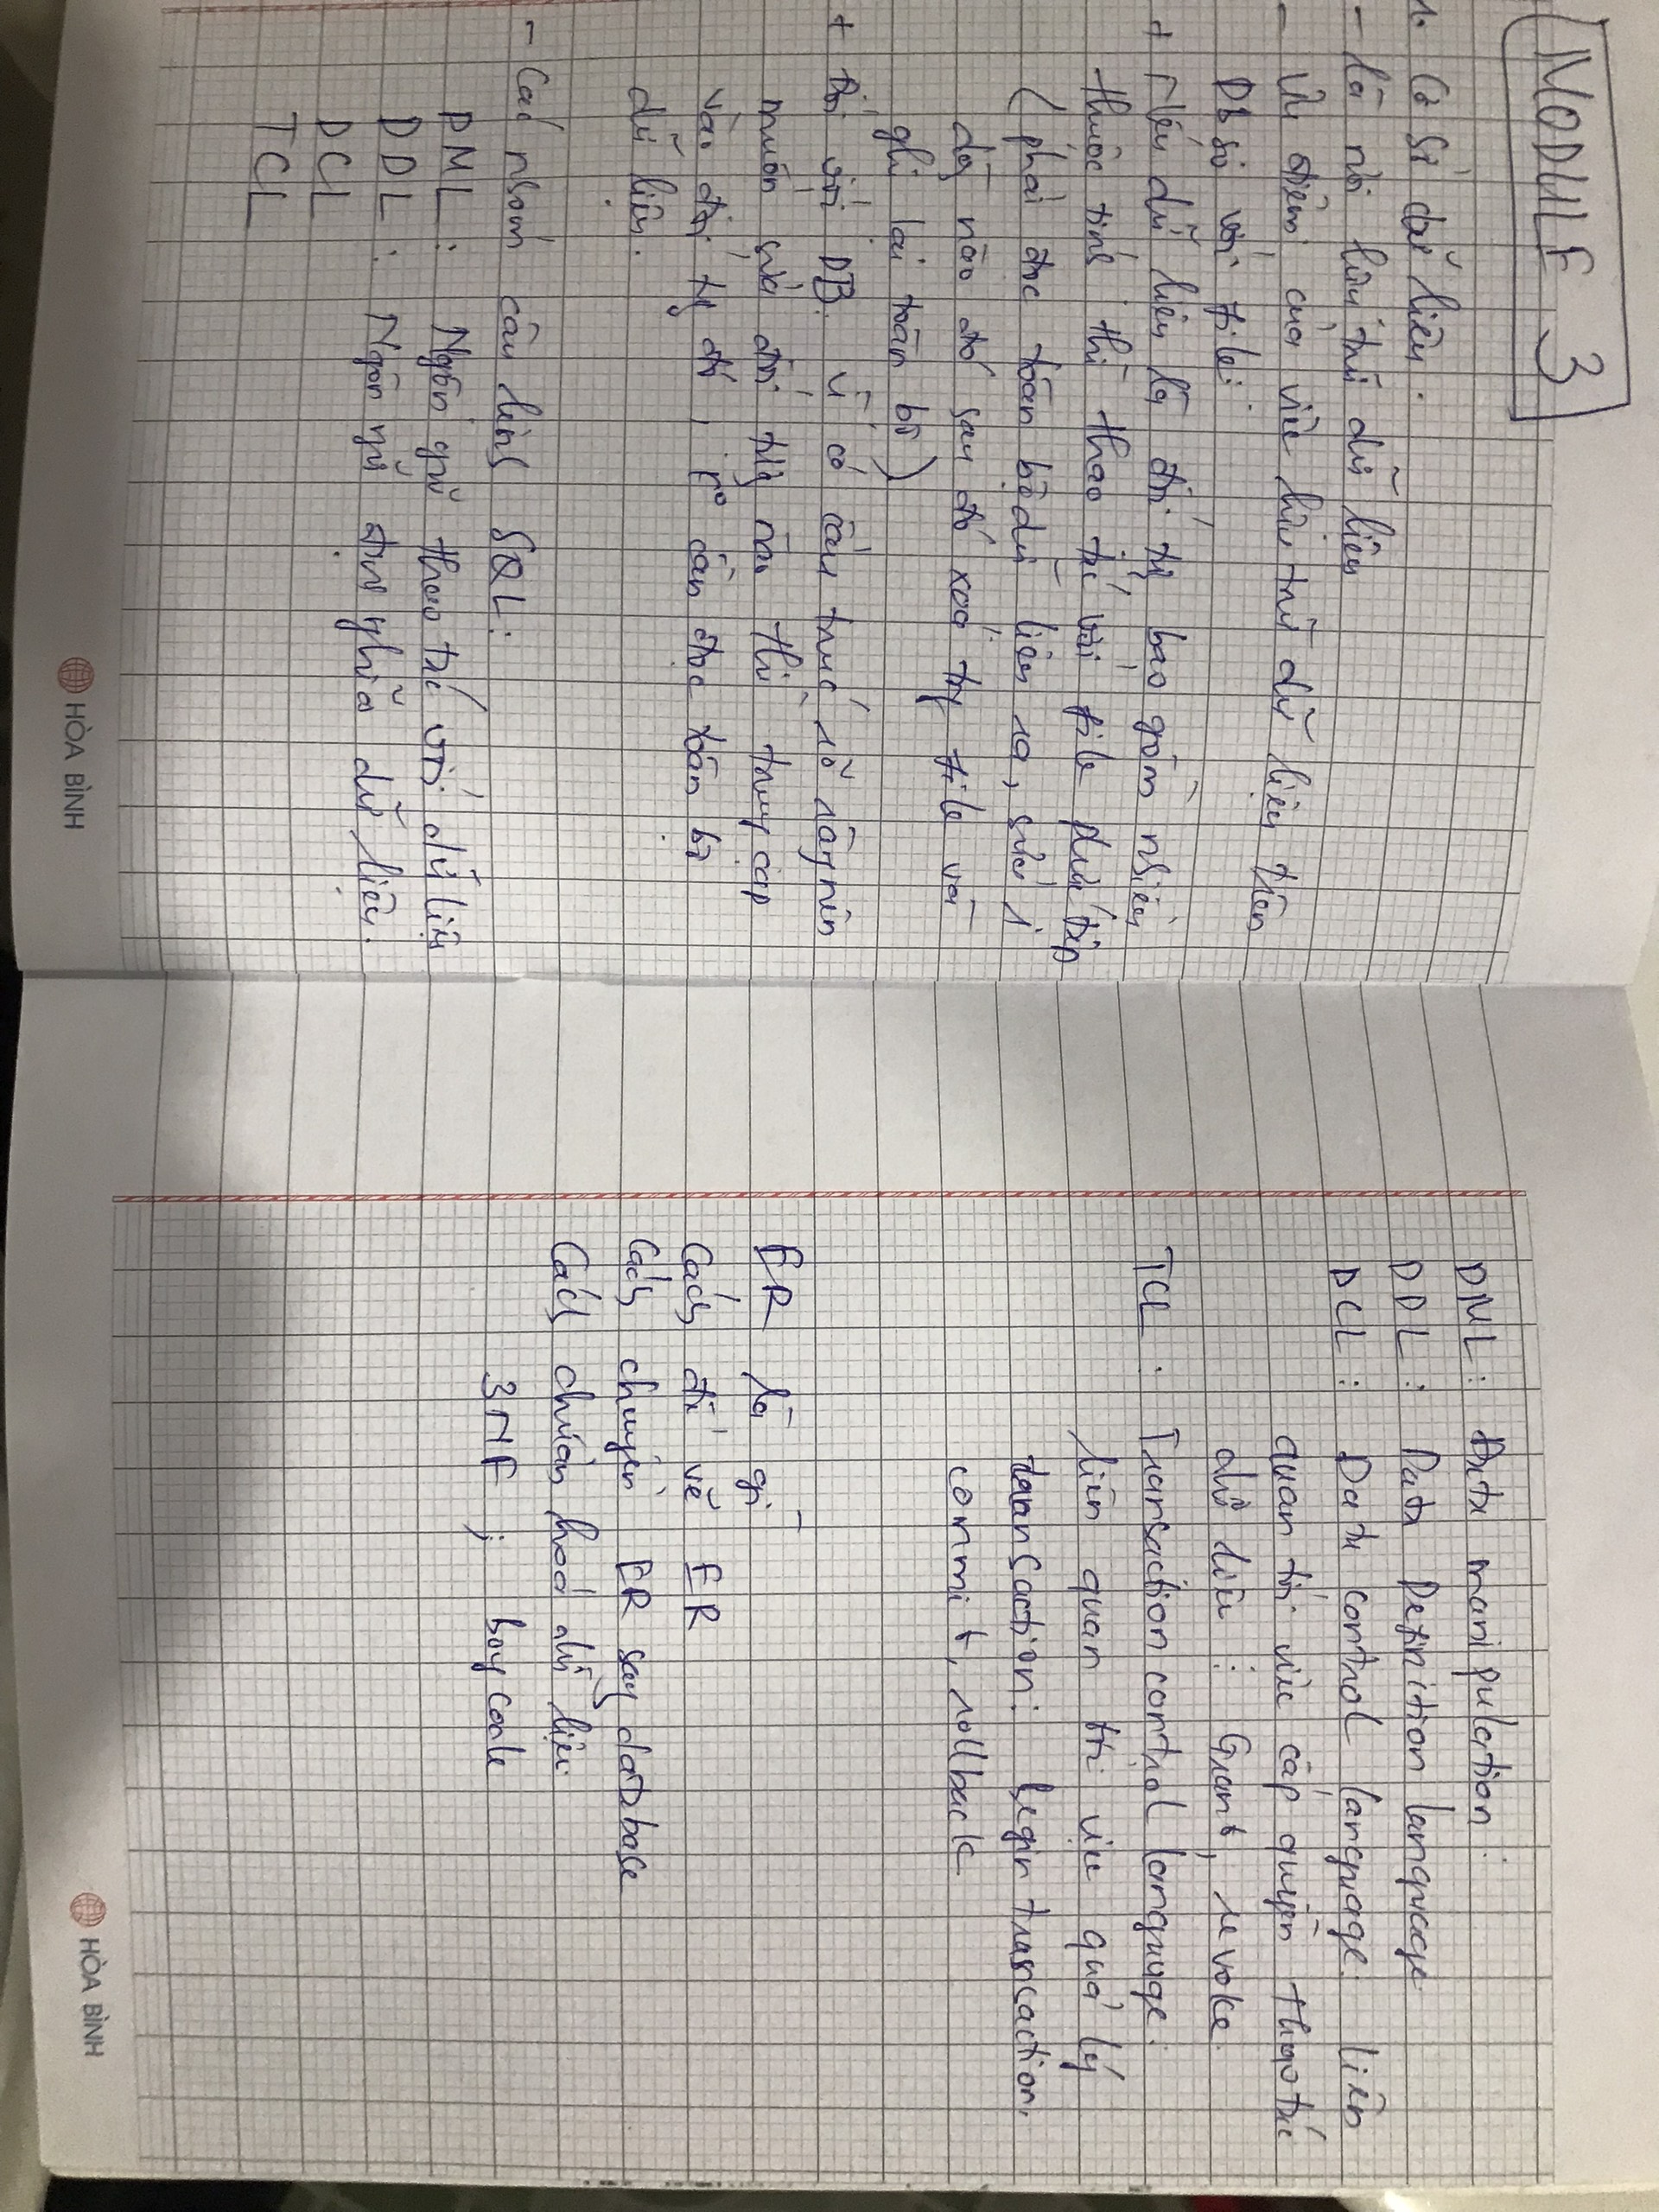 MODULE 3
1. Cơ sở dữ liệu.
- là nơi lưu trữ dữ liệu
- Ưu điểm của việc lưu trữ dữ liệu trên
Db so với file:
+ Nếu dữ liệu là đối tg bao gồm nhiều
thuộc tính thì thao tác với file phức tạp
(phải đọc toàn bộ dữ liệu ra, sửa 1
dòng nào đó sau đó xoá trg file và
ghi lại toàn bộ)
+ Đối với DB: vì có cấu trúc rõ ràng nên
muốn sửa đối tg nào thì truy cập
vào đối tg đó, ko cần đọc toàn bộ
dữ liệu.
- Các nhóm câu lệnh SQL:
DML: Ngôn ngữ thao tác với dữ liệu
DDL: Ngôn ngữ định nghĩa dữ liệu.
DCL
TCL
HÒA BÌNH
DML: Data manipulation:
DDL: Data Definition language
DCL: Data control language: liên
quan tới việc cấp quyền thao tác
dữ liệu: Grant, revoke.
TCL: Transaction control language:
liên quan tới việc quản lý
transaction: begin transaction,
commit, rollback
ER là gì
Cách để vẽ ER
Cách chuyển ER sang database
Cách chuẩn hoá dữ liệu
3NF; boy code
HÒA BÌNH